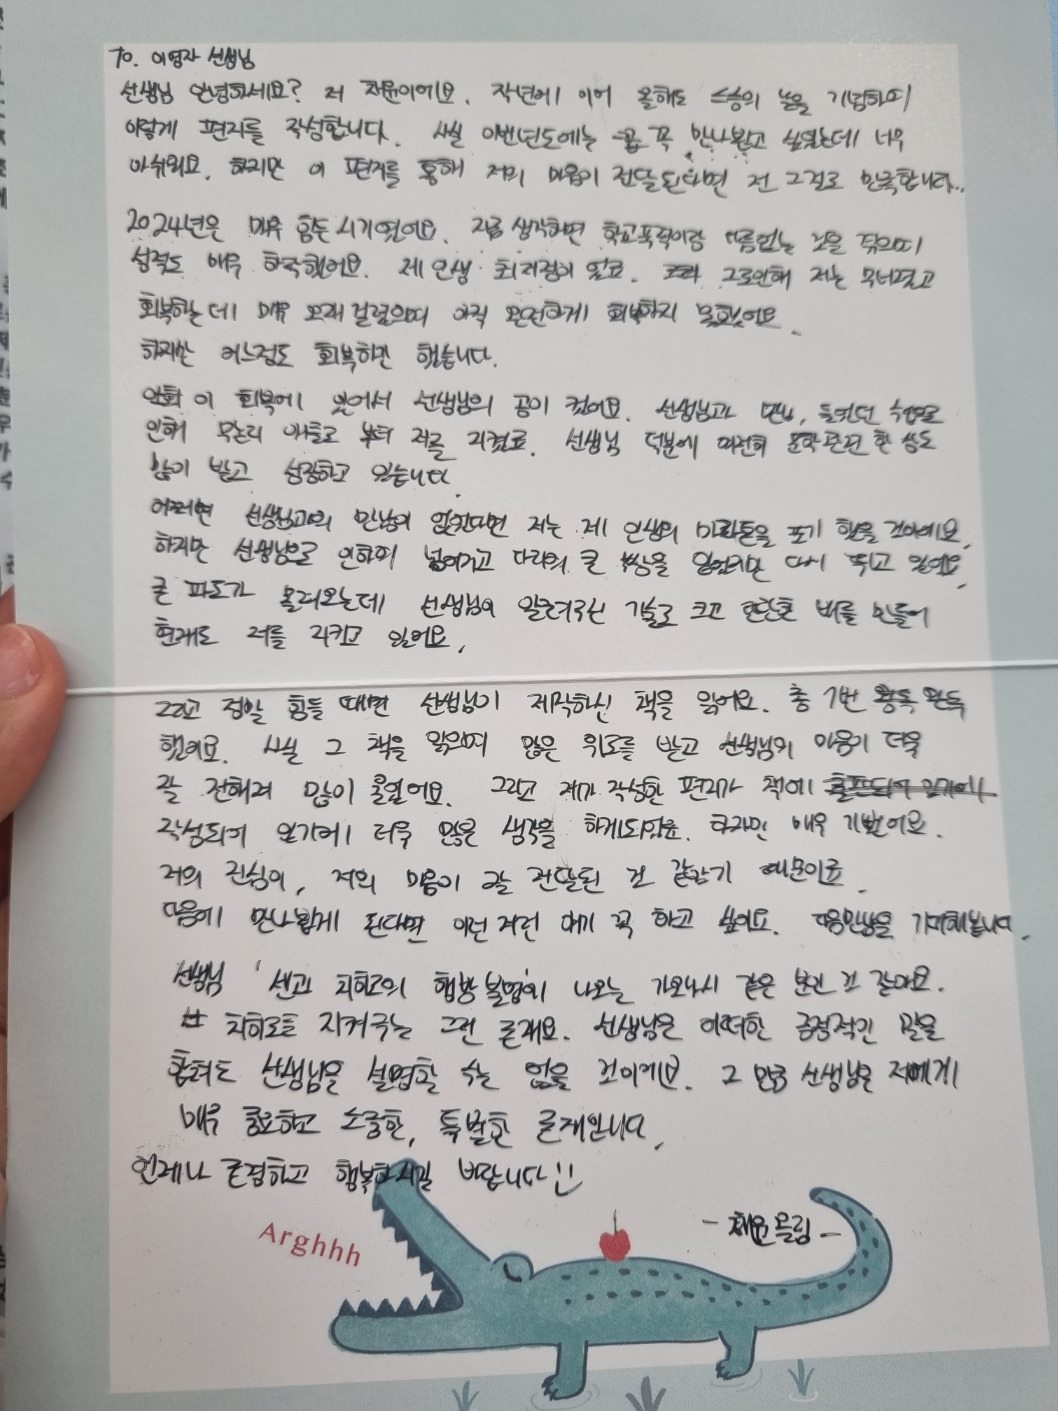 TO. 이영자 선생님
선생님 안녕하세요? 저 채윤이에요. 작년에 이어 올해도 스승의 날을 기념하며
이렇게 편지를 작성합니다. 사실 이번년도에는 꼭 만나뵙고 싶었는데 너무
아쉬워요. 하지만 이 편지를 통해 저의 마음이 전달된다면 전 그걸로 만족합니다..
2024년은 매우 힘든 시기였어요. 지금 생각하면 학교폭력이랑 다름없는 것을 겪으며
성적도 매우 하락했어요. 제 인생 최저점이었고. 그로인해 저는 무너졌고
회복하는데 매우 오래 걸렸으며 아직 완전하게 회복하지 못했어요.
하지만 어느정도 회복하긴 했습니다.
이 회복에 있어서 선생님의 공이 컸어요. 선생님과 만남, 들었던 수업으로
인해 무는리 아들로 부터 저를 지켰고. 선생님 덕분에 여전히 문학관련 한 상도
많이 받고 성장하고 있습니다.
어쩌면 선생님과의 만남이 없었다면 저는 제 인생의 마라톤을 포기 했을 것이에요.
하지만 선생님으로 인하여 넘어지고 다리의 큰 부상을 입었지만 다시 뛰고 있어요.
큰 파도가 몰려오는데 선생님이 알려주신 기술로 크고 단단한 배를 만들어
현재도 저를 지키고 있어요.
그리고 정말 힘들 때면 선생님이 제작하신 책을 읽어요. 총 7번 완독
했어요. 사실 그 책을 읽으며 많은 위로를 받고 선생님의 마음이 더욱
잘 전해져 많이 울었어요. 그리고 제가 작성한 편지가 책에
작성되어 있기에 더욱 많은 생각을 하게되었고. 하지만 매우 기뻤어요.
저의 진심이, 저의 마음이 잘 전달된 것 같았기 때문이죠.
다음에 만나뵙게 된다면 이런 저런 얘기 꼭 하고 싶어요. 다음만남을 기대해봅니다.
선생님 '센과 치히로의 행방불명'에 나오는 가오나시 같은 분인 것 같아요.
치히로를 지켜주는 그런 존재요. 선생님은 어떠한 긍정적인 말을
합쳐도 선생님을 설명할 수는 없을 것이에요. 그 만큼 선생님은 저에게
매우 중요하고 소중한, 특별한 존재입니다.
언제나 존경하고 행복하시길 바랍니다 :)
- 채윤 올림 -
Arghhh